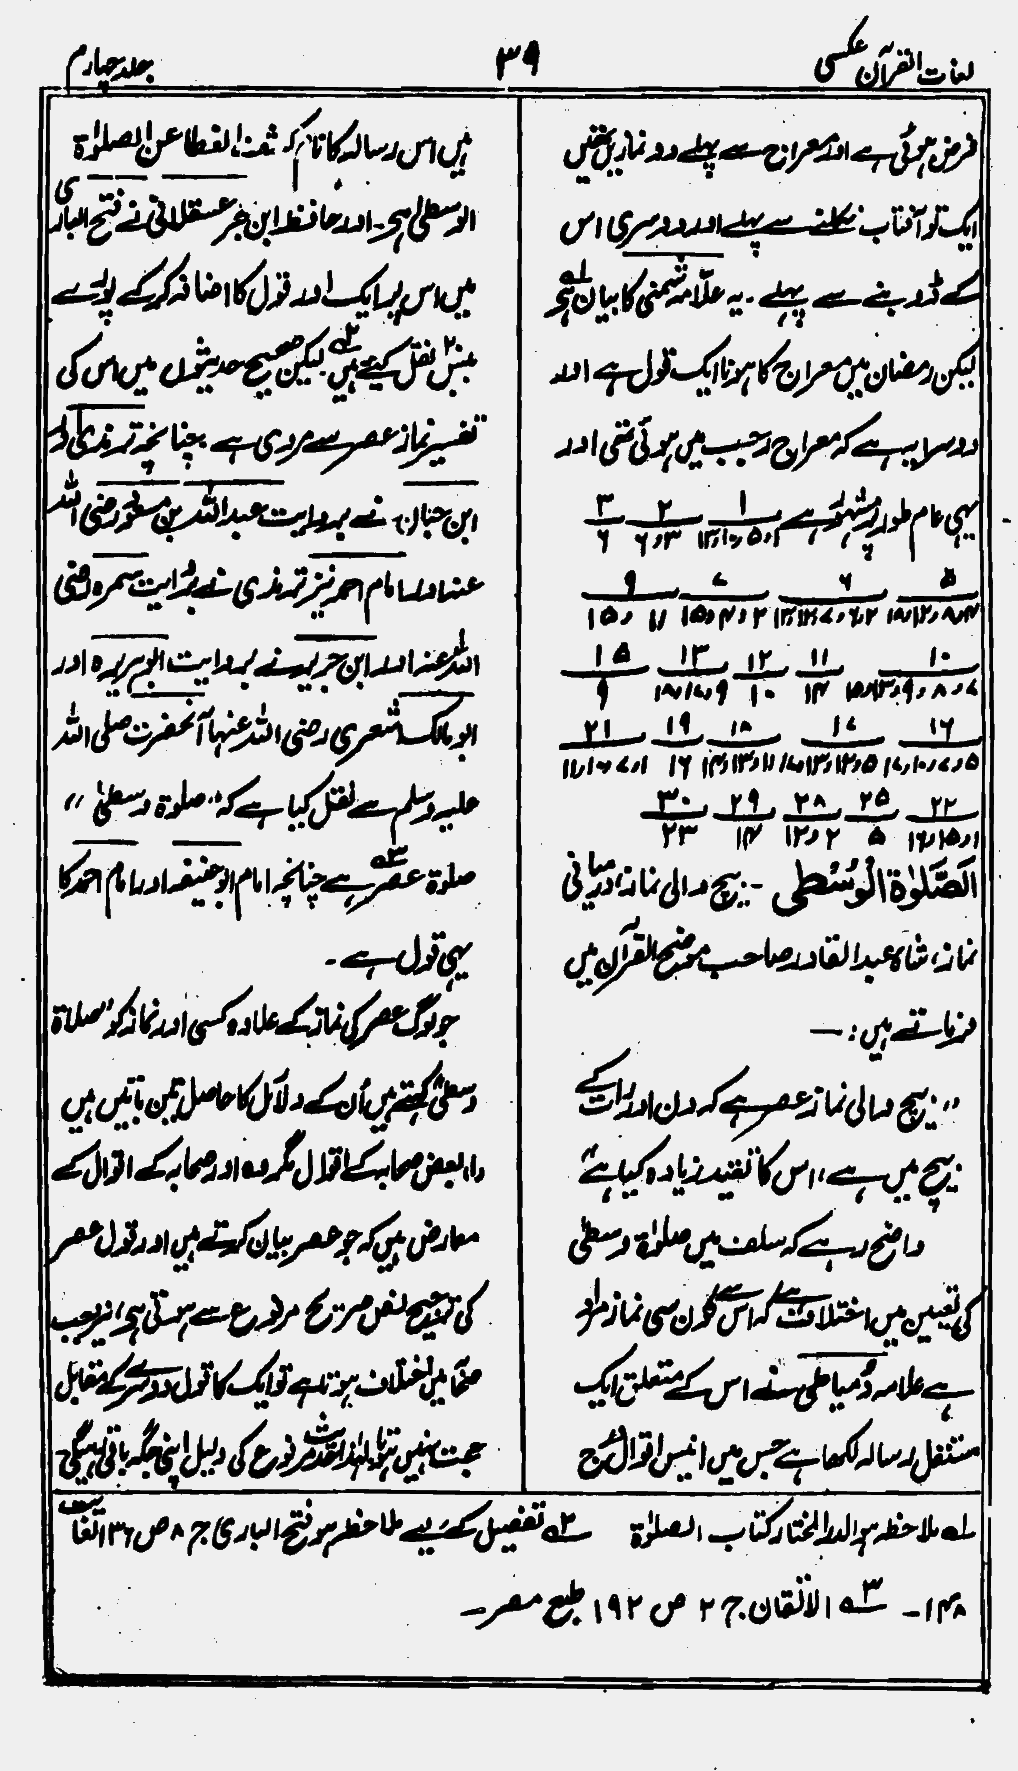 لغات القرآن عکسی
۳۹
جلد چہارم
فرض ہوئی ہے اور معراج سے پہلے دو نمازیں تھیں
ایک تو آفتاب نکلنے سے پہلے اور دوسری اس
کے ڈوبنے سے پہلے ۔ یہ علّامہ شمنی کا بیان ہے ۱ے
لیکن رمضان میں معراج کا ہونا ایک قول ہے اور
دوسرا یہ ہے کہ معراج رجب میں ہوئی تھی اور
یہی عام طور پر مشہور ہے ۱ ۲ ۳
۳و۶ ۶
۵ ۶ ۷ ۹
۴و۸و۱۲و۱۸ ۲و۴و۱۵ ۱۱ و ۱۵
۱۰ ۱۱ ۱۲ ۱۳ ۱۵
۱۴ ۱۰ ۹و۱۷و۱۸ ۹
۱۶ ۱۷ ۱۸ ۱۹ ۲۱
۵و۷و۱۰و۱۷ ۱۱و۱۳و۱۴ ۱۶ ۱و۷و۱۰و۱۱
۲۲ ۲۵ ۲۸ ۲۹ ۳۰
۱و۱۵و۱۶ ۵ ۲ و۱۲ ۱۴ ۲۳
الصَّلٰوۃِ الْوُسْطٰی ۔ بیچ والی نماز، درمیانی
نماز، شاہ عبدالقادر صاحب موضح القرآن میں
فرماتے ہیں : —
،، بیچ والی نماز عصر ہے کہ دن اور رات کے
بیچ میں ہے، اس کا تقید زیادہ کیا ہے"
واضح رہے کہ سلف میں صلوٰۃ وسطیٰ
کی تعیین میں اختلاف ہے کہ اس سے کون سی نماز مراد
ہے علامہ دُمیاطی نے اس کے متعلق ایک
مستقل رسالہ لکھا ہے جس میں انیس اقوال درج
ہیں اس رسالہ کا نام کشف الغطا عن الصلوٰۃ
الوسطیٰ ہے ۔ اور حافظ ابن حجر عسقلانی نے فتح الباری
میں اس پر ایک اور قول کا اضافہ کر کے پورے
بیس ۲۰ نقل کیے ہیں ۲ے لیکن صحیح حدیثوں میں اس کی
تفسیر نماز عصر سے مروی ہے چنانچہ ترمذی اور
ابن حبان نے بروایت عبداللہ بن مسعود رضی اللہ
عنہ اور امام احمد نیز ترمذی نے بروایت سمرہ رضی
اللہ عنہ اور ابن جریر نے بروایت ابوہریرہ اور
ابو مالک اشعری رضی اللہ عنہما آنحضرت صلی اللہ
علیہ وسلم سے نقل کیا ہے کہ "صلوٰۃ وسطیٰ،،
صلوٰۃ عصر ہے ۳ے چنانچہ امام ابوحنیفہ اور امام احمد کا
یہی قول ہے ۔
جو لوگ عصر کی نماز کے علاوہ کسی اور نماز کو "صلاۃ
وسطیٰ" کہتے ہیں اُن کے دلائل کا حاصل تین باتیں ہیں
(۱) بعض صحابہ کے اقوال مگر وہ اور صحابہ کے اقوال کے
معارض ہیں کہ جو عصر بیان کرتے ہیں اور قول عصر
کی ترجیح نص صریح مرفوع سے ہوتی ہے، نیز جب
صحابہ میں اختلاف ہوتا ہے تو ایک کا قول دوسرے کے مقابل
حجت نہیں ہوتا، لہٰذا حدیث مرفوع کی دلیل اپنی جگہ باقی رہیگی
۱ے ملاحظہ ہو الدر المختار کتاب الصلوٰۃ ۲ے تفصیل کے لیے ملاحظہ ہو فتح الباری ج ۸ ص ۱۳۶ لغایت
۱۴۸ ۔ ۳ے الاتقان ج ۲ ص ۱۹۲ طبع مصر ۔